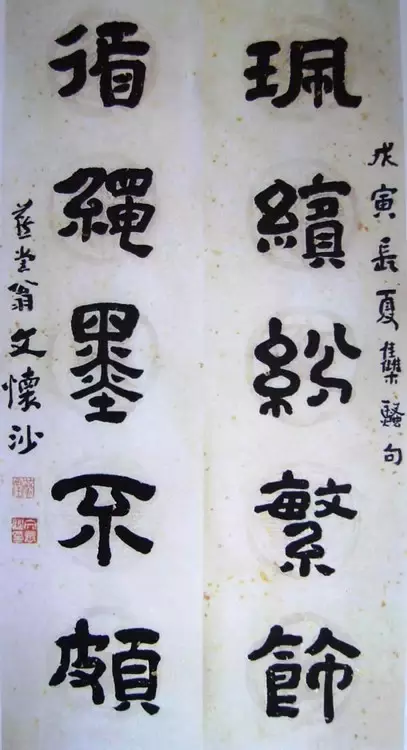 戊寅長夏集騷句
珮繽紛繁飾
循繩墨不頗
燕堂翁文懷沙